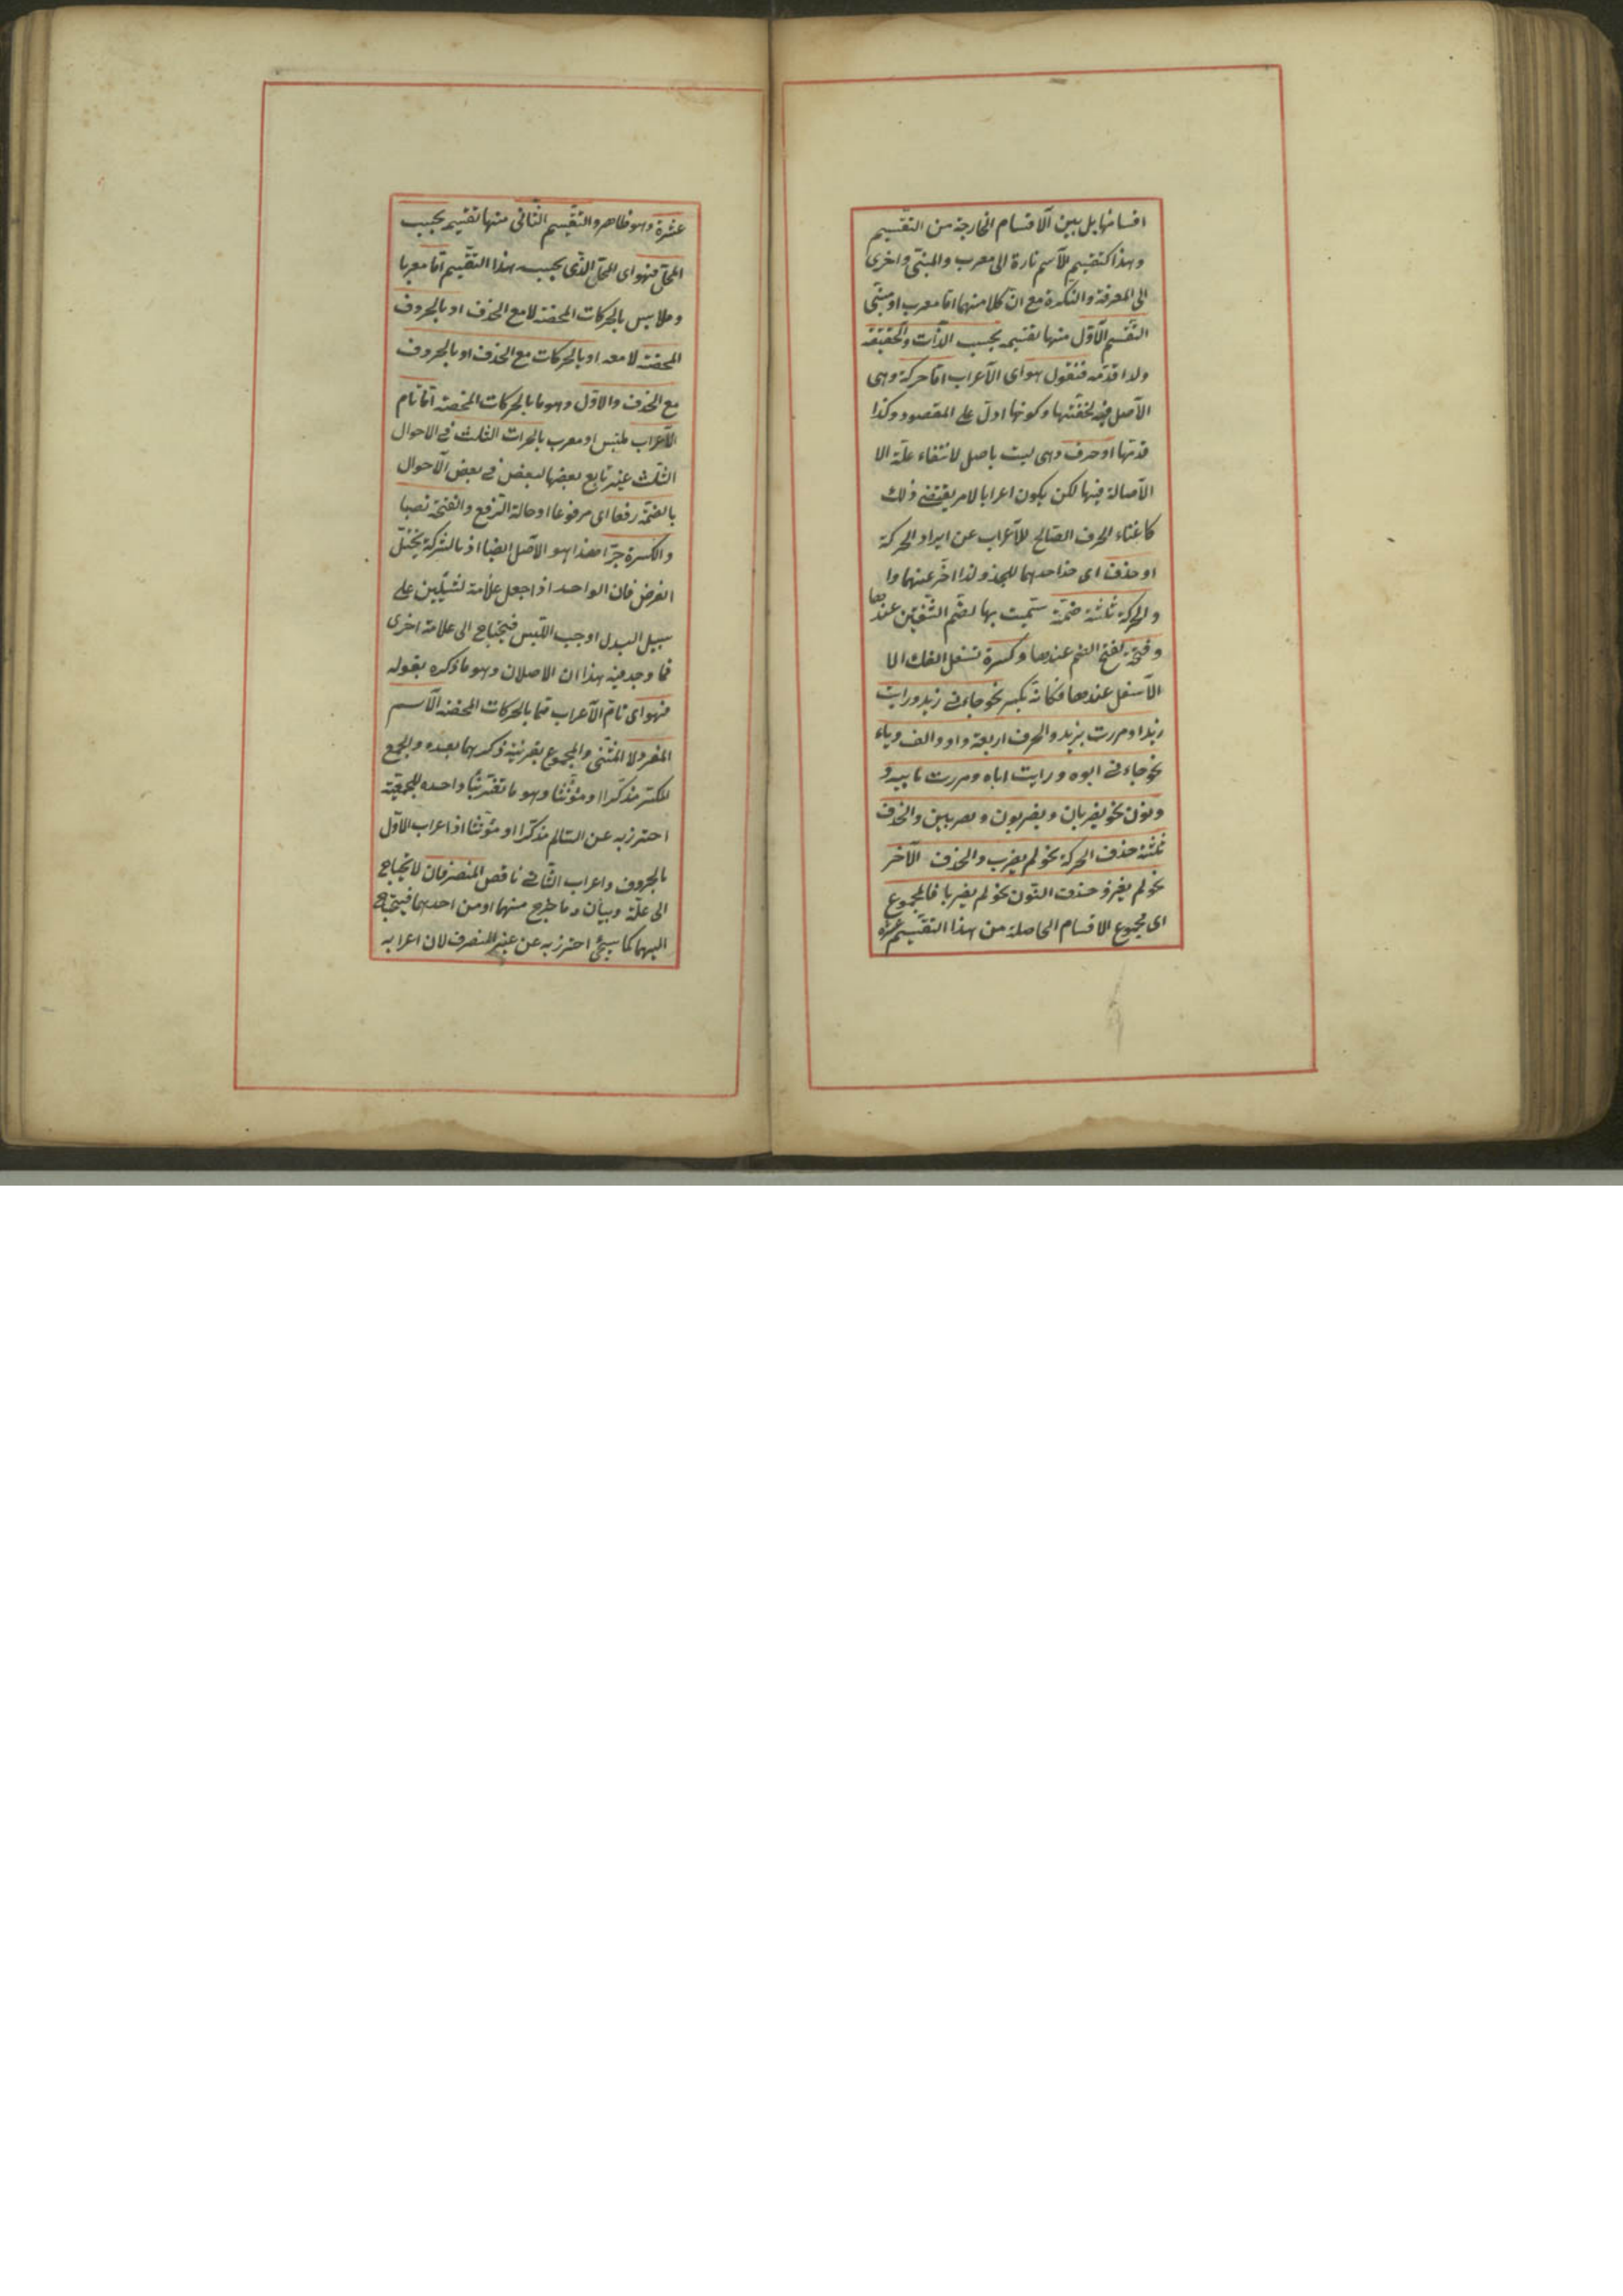 اقسامها بل بين الاقسام الخارجة من التقسيم
وهذا كتقسيم الاسم تارة الى معرب والمبنى واخرى
الى المعرفة والنكرة مع ان كلا منهما اما معرب او مبنى
التقسيم الاول منها تقسيم بحسب الذات والحقيقة
ولذا قدمه فنقول هو اى الاعراب اما حركة وهى
الاصل فيه لخفتها وكونها ادل على المقصود وكذا
قدمها او حرف وهى ليست باصل لانتفاء علة الا
الاصالة فيها لكن يكون اعرابا لامر يقتضى ذلك
كاغناء الحرف الصالح للاعراب عن ايراد الحركة
او حذف اى حذف احدهما للجذ ولذا اخر عنهما وا
والحركة ثلثة ضمة سميت بها لضم الشفتين عندها
وفتحة لفتح الفم عندها وكسرة تسفل الفك الا
الاسفل عندها فكانه يكسر نحو جاءنى زيد ورايت
زيدا ومررت بزيد والحرف اربعة واو والف وياء
نحو جاءنى ابوه ورايت اباه ومررت بابيه و
ونون نحو يضربان ويضربون وتضربين والحذف
ثلثة حذف الحركة نحو لم يضرب والحذف الآخر
نحو لم يغز وحذف النون نحو لم يضربا فالمجموع
اى مجموع الاقسام الحاصلة من هذا التقسيم عشرة
عشرة وهو ظاهر والتقسيم الثانى منها تقسيم بحسب
المحل فهو اى المحل الذى بحسب هذا التقسيم اما معربا
وملابس بالحركات المحضة لا مع الحذف او بالحروف
المحضة لا معه او بالحركات مع الحذف او بالحروف
مع الحذف والاول وهو ما بالحركات المحضة اما تام
الاعراب ملتبس او معرب بالحركات الثلث فى الاحوال
الثلث غير تابع بعضها لبعض فى بعض الاحوال
بالضمة رفعا اى مرفوعا او حالة الرفع والفتحة نصبا
والكسرة جرا هذا هو الاصل ايضا اذ بالشركة يختل
الغرض فان الواحد اذا جعل علامة لشيئين على
سبيل البدل اوجب اللبس فيحتاج الى علامة اخرى
فما وجد فيه هذا ان الاصلان وهو ما ذكره بقوله
فهو اى تام الاعراب مما بالحركات المحضة الاسم
المفرد لا المثنى والمجموع بقرينة ذكرهما بعده والجمع
المكسر مذكرا او مؤنثا وهو ما تغير بناء واحده للجمعية
احترز به عن السالم مذكرا او مؤنثا اذ اعراب الاول
بالحروف واعراب الثانى ناقص المنصرفان لا يحتاج
الى علة وبيان ما طرح منهما او من احدهما فيحتاج
اليهما كما سيجئ احترز به عن غير المنصرف لان اعرابه